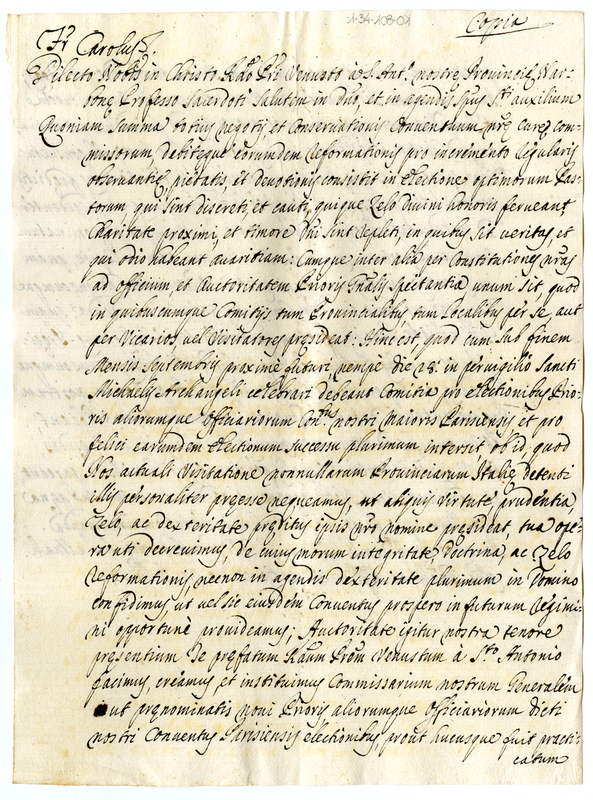 1-34-108-01
Copia
Fr Carolus &.
Dilecto Nobis in Christo Rdo Pri Venusto à S. Ant.o nostrę Provincię Nar-
bonę Professo sacerdoti salutem in Dno, et in agendis Spus Sti auxilium
Quoniam summa totius negotij et conservationis Conventuum nrę curę com-
missorum, debitęque eorumdem reformationis pro incremento regularis
observantię, pietatis, et devotionis consistit in electione optimorum Pas-
torum qui sint discreti, et cauti, quique zelo divini honoris ferveant,
charitate proximi, et timore Dni sint repleti, in quibus sit veritas, et
qui odio habeant avaritiam: Cumque inter alia per Constitutiones nras
ad officium et Auctoritatem Prioris Gnalis spectantia unum sit, quod
in quibuscumque Comitijs tum Provincialibus, tum Localibus per se, aut
per Vicarios, vel Visitatores pręsideat: Hinc est, quod cum sub finem
Mensis Septembris proxime futuri nempe die 28: in pervigilio Sancti
Michaelis Archangeli celebrari debeant Comitia pro electionibus Prio-
ris aliorumque officiariorum Con.tus nostri maioris Parisiensis et pro
felici earumdem electionum successu plurimum intersit ob id, quod
Nos actuali Visitatione nonnullarum Provinciarum Italię detenti
illis personaliter pręesse nequeamus, ut aliquis virtute, prudentia,
zelo, ac dexteritate pręditus ipsis nro nomine pręsideat, tua ope-
ra uti decrevimus, de cuius morum integritate, doctrina, ac zelo
reformationis, necnon in agendis dexteritate plurimum in Domino
confidimus ut vel sic eiusdem Conventus prospero in futurum regimi-
ni opportunè provideamus; Auctoritate igitur nostra tenore
pręsentium Te pręfatum Rdum Prem Venustum à Sto Antonio
facimus, creamus, et instituimus Commissarium nostrum Generalem
ut pręnominatis novi Prioris aliorumque Officiariorum dicti
nostri Conventus Parisiensis electionibus, prout hucusque fuit practi-
catum